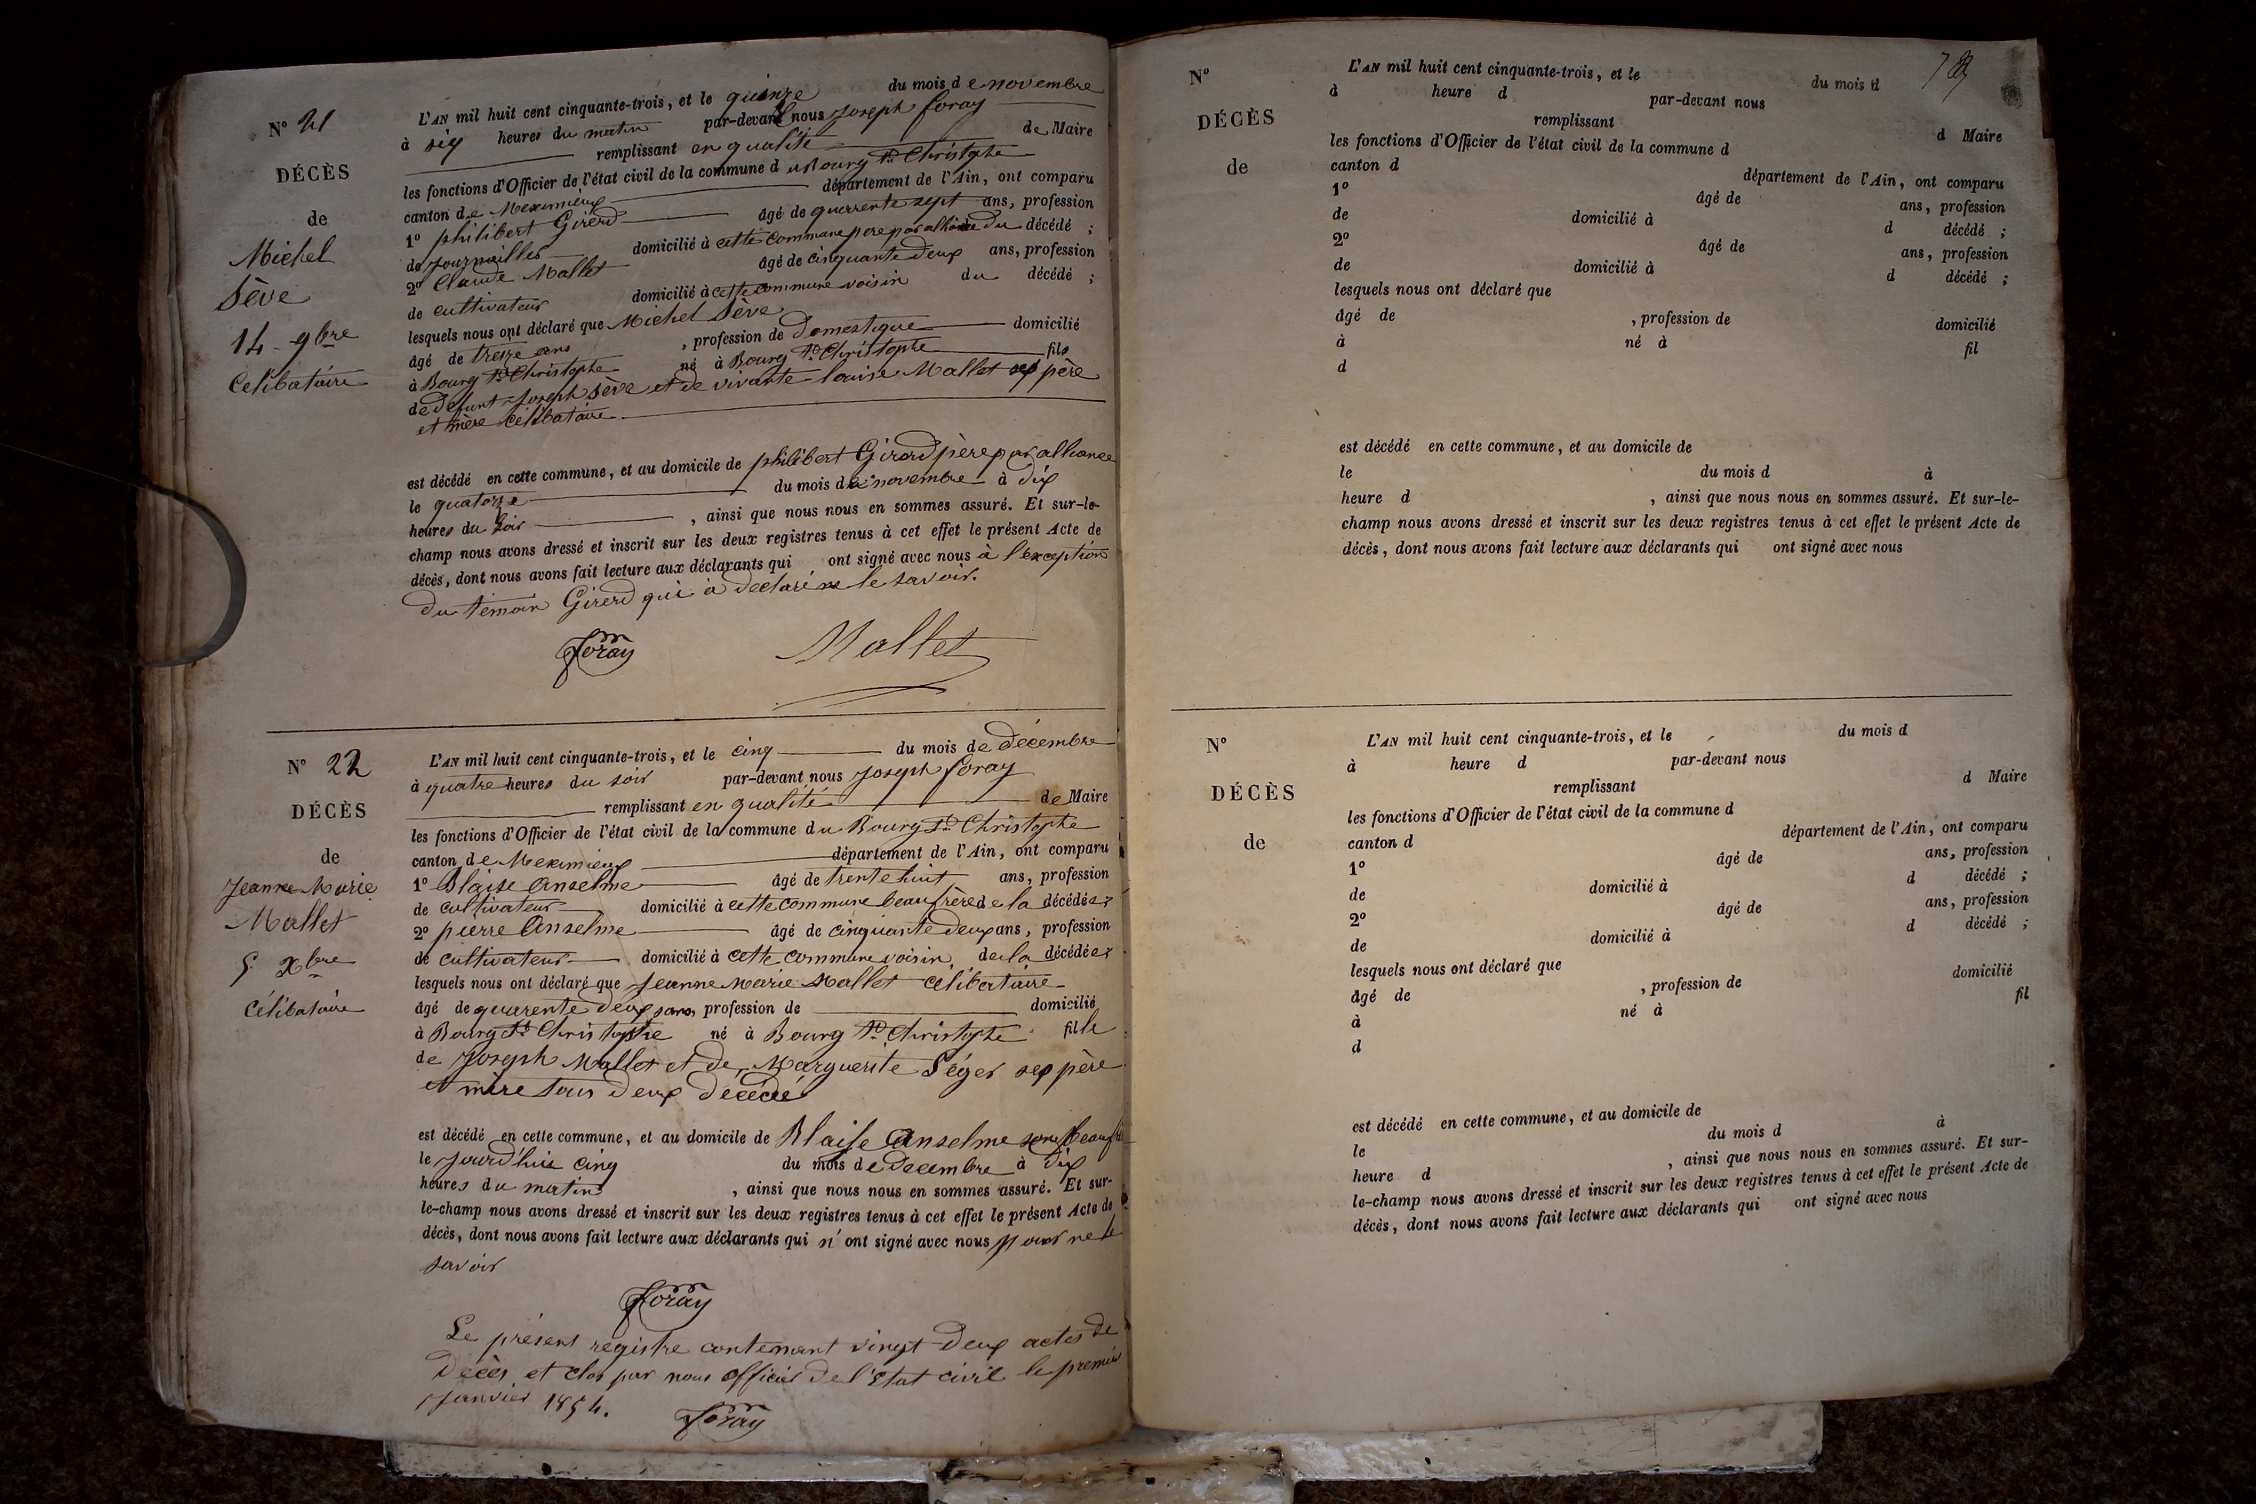 N° 21
DÉCÈS
de
Michel
Sève
14 9bre
Celibataire
L'AN mil huit cent cinquante-trois, et le quinze du mois de novembre
à six heures du matin par-devant nous Joseph foray
remplissant en qualité de Maire
les fonctions d'Officier de l'état civil de la commune du Bourg St Christophe
canton de Meximieux département de l'Ain, ont comparu
1° philibert Girerd âgé de quarente sept ans, profession
de journailler domicilié à cette commune pere par alliance du décédé ;
2° Claude Mallet âgé de cinquante deux ans, profession
de cultivateur domicilié à cette commune voisin du décédé ;
lesquels nous ont déclaré que Michel Sève
âgé de treize ans , profession de domestique domicilié
à Bourg St Christophe né à Bourg St Christophe fils
de defunt Joseph Sève et de vivante louise Mallet ses père
et mère célibataire
est décédé en cette commune, et au domicile de philibert Girerd père par alliance
le quatorze du mois de novembre à dix
heures du soir , ainsi que nous nous en sommes assuré. Et sur-le-
champ nous avons dressé et inscrit sur les deux registres tenus à cet effet le présent Acte de
décès, dont nous avons fait lecture aux déclarants qui ont signé avec nous à l'exception
du témoin Girerd qui a declaré ne le savoir.
foray Mallet
N° 22
DÉCÈS
de
Jeanne Marie
Mallet
5 Xbre
célibataire
L'AN mil huit cent cinquante-trois, et le cinq du mois de décembre
à quatre heures du soir par-devant nous Joseph foray
remplissant en qualité de Maire
les fonctions d'Officier de l'état civil de la commune du Bourg St Christophe
canton de Meximieux département de l'Ain, ont comparu
1° Blaise Anselme âgé de trente huit ans, profession
de cultivateur domicilié à cette commune beaufrère de la décédée ;
2° pierre Anselme âgé de cinquante deux ans, profession
de cultivateur domicilié à cette commune voisin de la décédée ;
lesquels nous ont déclaré que Jeanne Marie Mallet célibataire
âgé de quarente deux ans, profession de domicilié
à Bourg St Christophe né à Bourg St Christophe fille
de Joseph Mallet et de Marguerite Séger ses père
et mère tous deux décédé
est décédé en cette commune, et au domicile de Blaise Anselme son beaufrè
le jourd'hui cinq du mois de decembre à dix
heures du matin , ainsi que nous nous en sommes assuré. Et sur-
le-champ nous avons dressé et inscrit sur les deux registres tenus à cet effet le présent Acte de
décès, dont nous avons fait lecture aux déclarants qui n'ont signé avec nous pour ne le
savoir
foray
Le présent registre contenant vingt deux actes de
Décès et clos par nous officier de l'Etat civil le premier
Janvier 1854.
foray
N°
DÉCÈS
de
L'AN mil huit cent cinquante-trois, et le du mois d
à heure d par-devant nous
remplissant
d Maire
les fonctions d'Officier de l'état civil de la commune d
canton d département de l'Ain, ont comparu
1° âgé de ans, profession
de domicilié à d décédé ;
2° âgé de ans, profession
de domicilié à d décédé ;
lesquels nous ont déclaré que
âgé de , profession de domicilié
à né à fil
d
est décédé en cette commune, et au domicile de
le du mois d à
heure d , ainsi que nous nous en sommes assuré. Et sur-le-
champ nous avons dressé et inscrit sur les deux registres tenus à cet effet le présent Acte de
décès, dont nous avons fait lecture aux déclarants qui ont signé avec nous
N°
DÉCÈS
de
L'AN mil huit cent cinquante-trois, et le du mois d
à heure d par-devant nous
remplissant
d Maire
les fonctions d'Officier de l'état civil de la commune d
canton d département de l'Ain, ont comparu
1° âgé de ans, profession
de domicilié à d décédé ;
2° âgé de ans, profession
de domicilié à d décédé ;
lesquels nous ont déclaré que
âgé de , profession de domicilié
à né à fil
d
est décédé en cette commune, et au domicile de
le du mois d à
heure d , ainsi que nous nous en sommes assuré. Et sur-
le-champ nous avons dressé et inscrit sur les deux registres tenus à cet effet le présent Acte de
décès, dont nous avons fait lecture aux déclarants qui ont signé avec nous